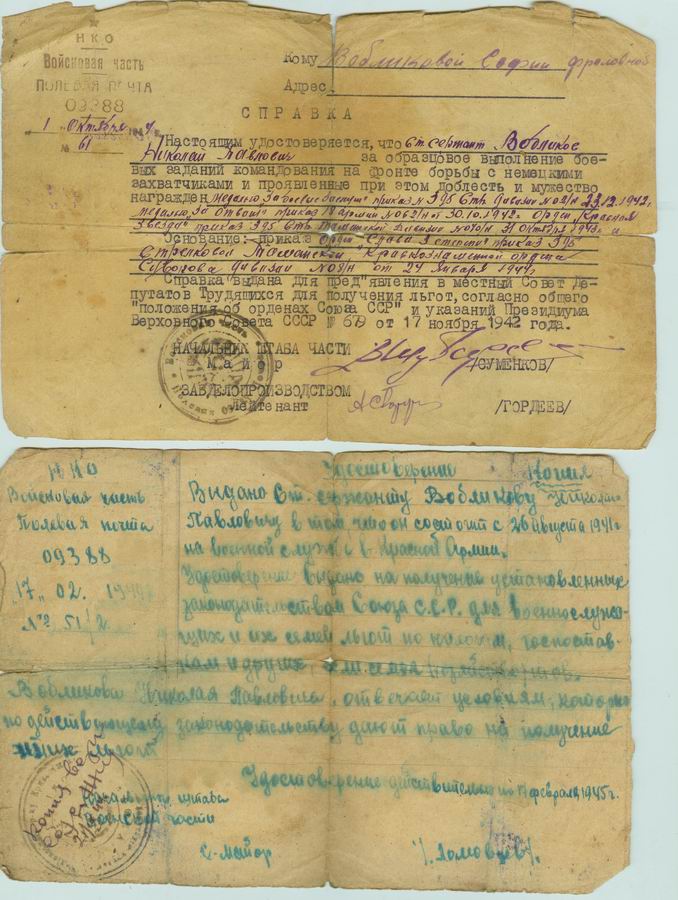 НКО
Войсковая часть
ПОЛЕВАЯ ПОЧТА
09388
1 Октября
№ 61
Кому Вобликовой Софии Фроловной
Адрес
СПРАВКА
Настоящим удостоверяется, что ст сержант Вобликов
Николай Павлович за образцовое выполнение бое-
вых заданий командования на фронте борьбы с немецкими
захватчиками и проявленные при этом доблесть и мужество
награжден медалью За боевые заслуги приказ № 395 Стр дивизии №21/н 23.12.1942г
медалью За отвагу приказ 18 армии №62/н от 30.10.1942г Орден Красная
Звезда приказ 395 Стр Таманской дивизии 31 Октября 1943г и
Основание: приказ Орден Слава 3 степени приказ 395
Стрелковой Таманской Краснознаменной ордена
Суворова дивизии №08/н от 24 Января 1944г
Справка выдана для пред"явления в местный Совет Де-
путатов Трудящихся для получения льгот, согласно общего
"положения об орденах Союза ССР" и указаний Президиума
Верховного Совета СССР № 679 от 17 ноября 1942 года.
НАЧАЛЬНИК ШТАБА ЧАСТИ
Майор /СУМЕНКОВ/
ЗАВДЕЛОПРОИЗВОДСТВОМ
Лейтенант /ГОРДЕЕВ/
НКО
Войсковая часть
Полевая почта
09388
"17" 02.
№ 51/2
Удостоверение Копия
Выдано Ст. сержанту Вобликову Николаю
Павловичу в том что он состоит с 26 августа 1941г
на военной службе в Красной Армии.
Удостоверение выдано на получение установленных
законодательством Союза С.С.Р. для военнослужа-
щих и их семей льгот по налогам, госпостав-
кам и других, семья
Вобликова Николая Павловича, отвечает условиям, которые
по действующему законодательству дают право на получение
этих льгот
Удостоверение действительно по 17 февраля 1945г.
Начальник штаба
Воинской части
С-майор